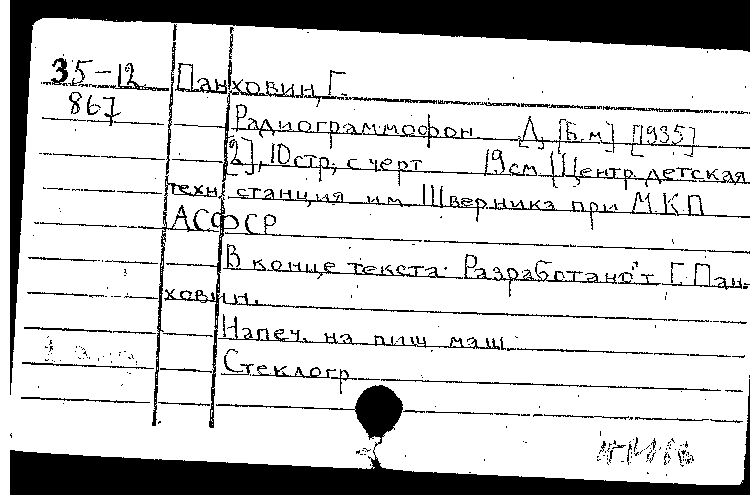 35-12 Панховин, Г.
867
Радиограммофон. Л, [Б.м] [1935]
[2], 10 стр; с черт 19 см (Центр. детская
техн. станция им Шверника при М.К.П
АСФСР
В конце текста: Разработано: Г. Пан-
ховин.
Напеч. на пиш маш.
Стеклогр